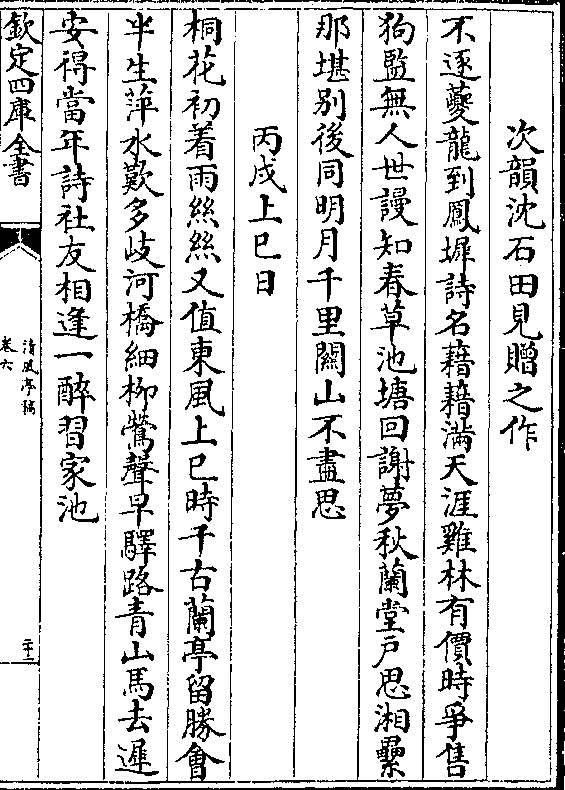 次韻沈石田見贈之作
不逐夔龍到鳳墀詩名藉藉滿天涯雞林有價時爭售
狗監無人世謾知春草池塘回謝夢秋蘭堂戸思湘纍
那堪别後同明月千里闗山不盡思
丙戌上巳日
桐花初着雨絲絲又值東風上巳時千古蘭亭留勝會
半生萍水歎多岐河橋細柳鶯聲早驛路青山馬去遲
安得當年詩社友相逢一醉習家池
欽定四庫全書
清風亭稿
卷六
二十二